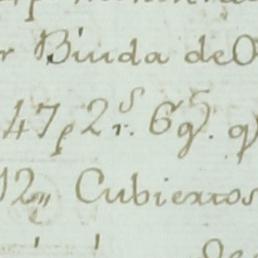 r Biuda de O
47p 2r.s 6g.s q
12,, Cubiertos